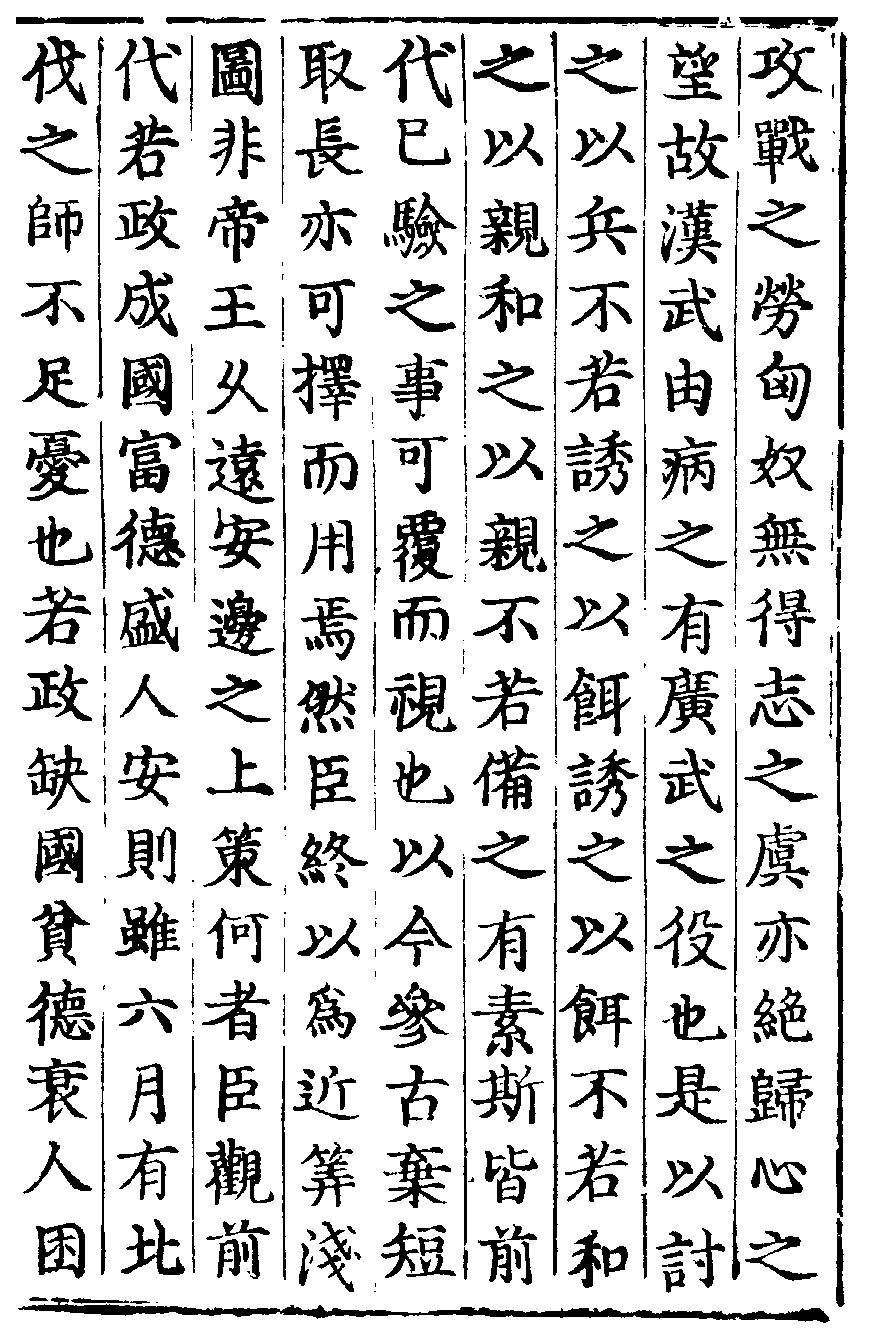 攻戰之勞匈奴無得志之虞亦絕歸心之
望故漢武由病之有廣武之役也是以討
之以兵不若誘之以餌誘之以餌不若和
之以親和之以親不若備之有素斯皆前
代已驗之事可覆而視也以今參古棄短
取長亦可擇而用焉然臣終以爲近筭淺
圖非帝王久遠安邊之上策何者臣觀前
代若政成國富德盛人安則雖六月有北
伐之師不足憂也若政缺國貧德衰人困